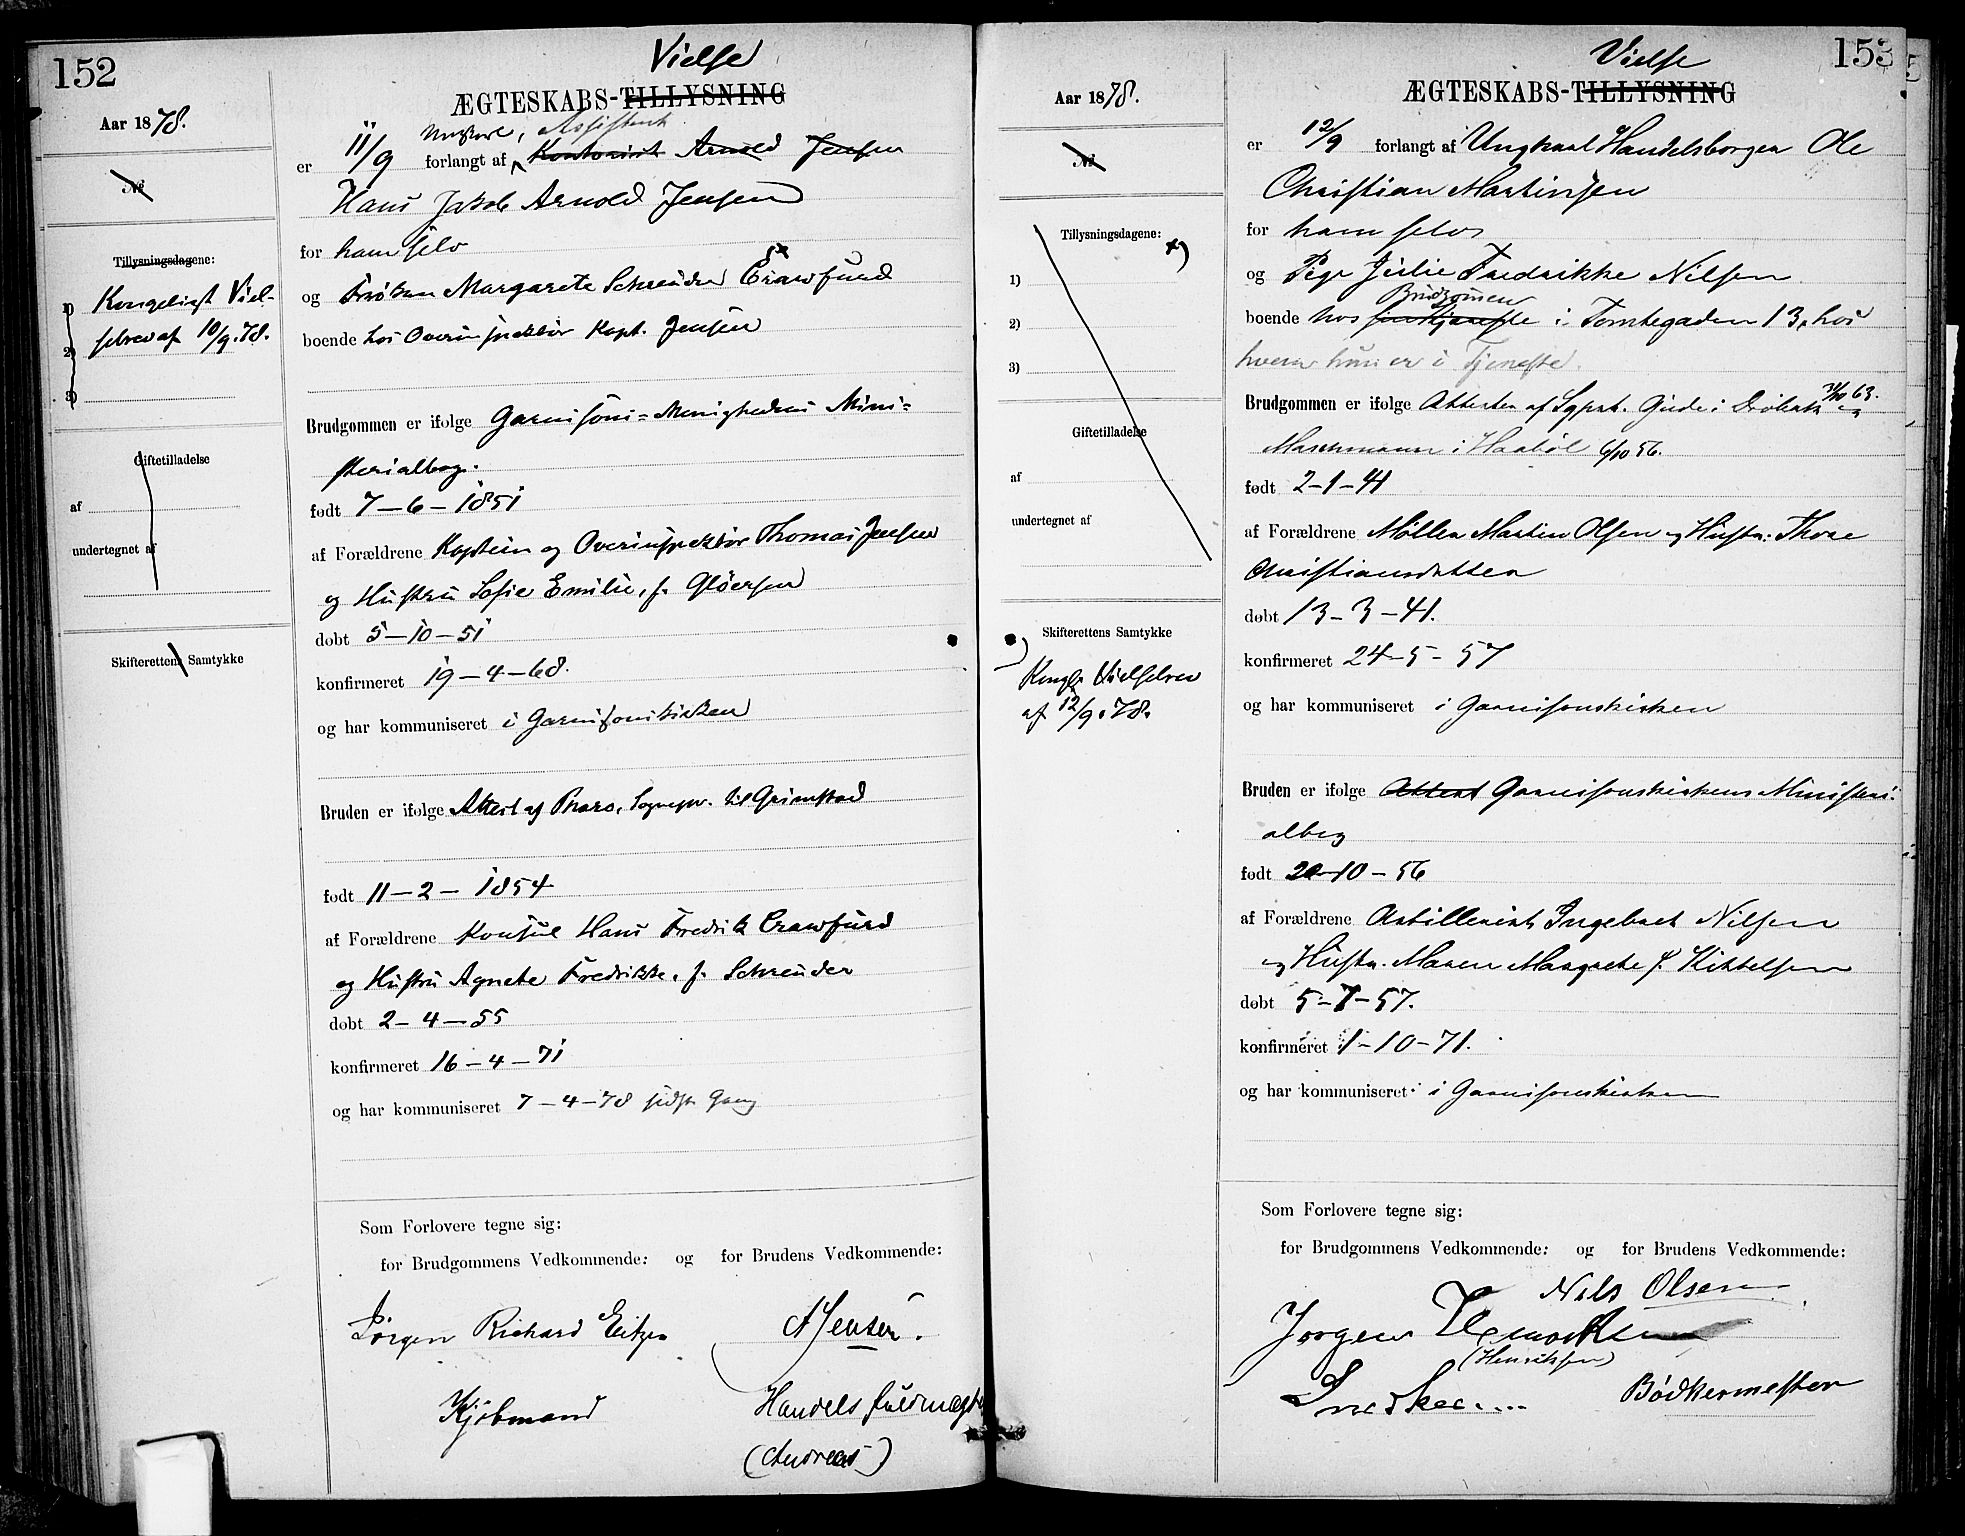 152
Vielse
ÆGTESKABS-TILLYSNING
Aar 1878.
№
er 11/9 forlangt af Ungkarl, Assistent Kontorist Arnold Jensen
Hans Jakob Arnold Jensen
for ham selv
og Frøken Margarete Schreuder Crawfurd
boende hos Overinspektør Kapt. Jensen
Tillysningsdagene:
1) Kongeligt Viel-
2) sebrev af 10/9.78.
3)
Giftetilladelse
af
undertegnet af
Skifterettens Samtykke
Brudgommen er ifølge Garnisons-Menighedens Mini-
sterialbog.
født 7-6-1851
af Forældrene Kaptein og Overinspektør Thomas Jensen
og Hustru Sofie Emilie, f. Gløersen
døbt 5-10-51
konfirmeret 19-4-68.
og har kommuniseret i Garnisonskirken
Bruden er ifølge Attest af Sognepr. til Grimstad
født 11-2-1854
af Forældrene Konsul Hans Fredrik Crawfurd
og Hustru Agnete Fredrikke, f. Schreuder
døbt 2-4-55
konfirmeret 16-4-71
og har kommuniseret 7-4-78 sidste Gang
Som Forlovere tegne sig:
for Brudgommens Vedkommende: og for Brudens Vedkommende:
Jørgen Richard Eitzen A Jensen.
Kjøbmand Handelsfuldmægtig
(Andreas)
153
Vielse
ÆGTESKABS-TILLYSNING
Aar 1878.
№
er 12/9 forlangt af Ungkarl Handelsborger Ole
Christian Martinsen
for ham selv
og Pige Julie Fredrikke Nilsen
boende hos Brudgommen i Tomtegaden 13, hos
hvem hun er i Tjeneste.
Tillysningsdagene: x)
1)
2)
3)
Giftetilladelse
af
undertegnet af
Skifterettens Samtykke
Kongl. Vielsebrev
af 12/9.78.
Brudgommen er ifølge Attester af Sgprst. Gude i Drøbak 31/10 63. og
Maschmann i Haabøl 6/10 56.
født 2-1-41
af Forældrene Møller Martin Olsen og Hustr. Thore
Christiansdatter
døbt 13-3-41.
konfirmeret 24-5-57
og har kommuniseret i Garnisonskirken
Bruden er ifølge Attest Garnisonskirkens Ministeri-
albog
født 20-10-56
af Forældrene Artillerist Ingebret Nilsen
og Hustr. Maren Margrete f. Kittelsen
døbt 5-7-57.
konfirmeret 1-10-71.
og har kommuniseret i Garnisonskirken
Som Forlovere tegne sig:
for Brudgommens Vedkommende: og for Brudens Vedkommende:
Nils Olsen
Jørgen
(Henriksen)
Snedker.... Bødkermester